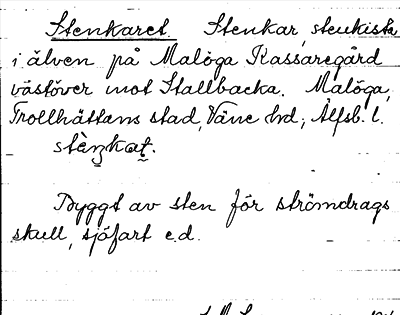 Stenkaret Stenkar, stenkista
i älven på Malöga Kassaregård
västöver mot Stallbacka. Malöga,
Trollhättans stad, Väne hd, Älfsb. l.
Byggt av sten för strömdrags
skull, sjöfart e.d.